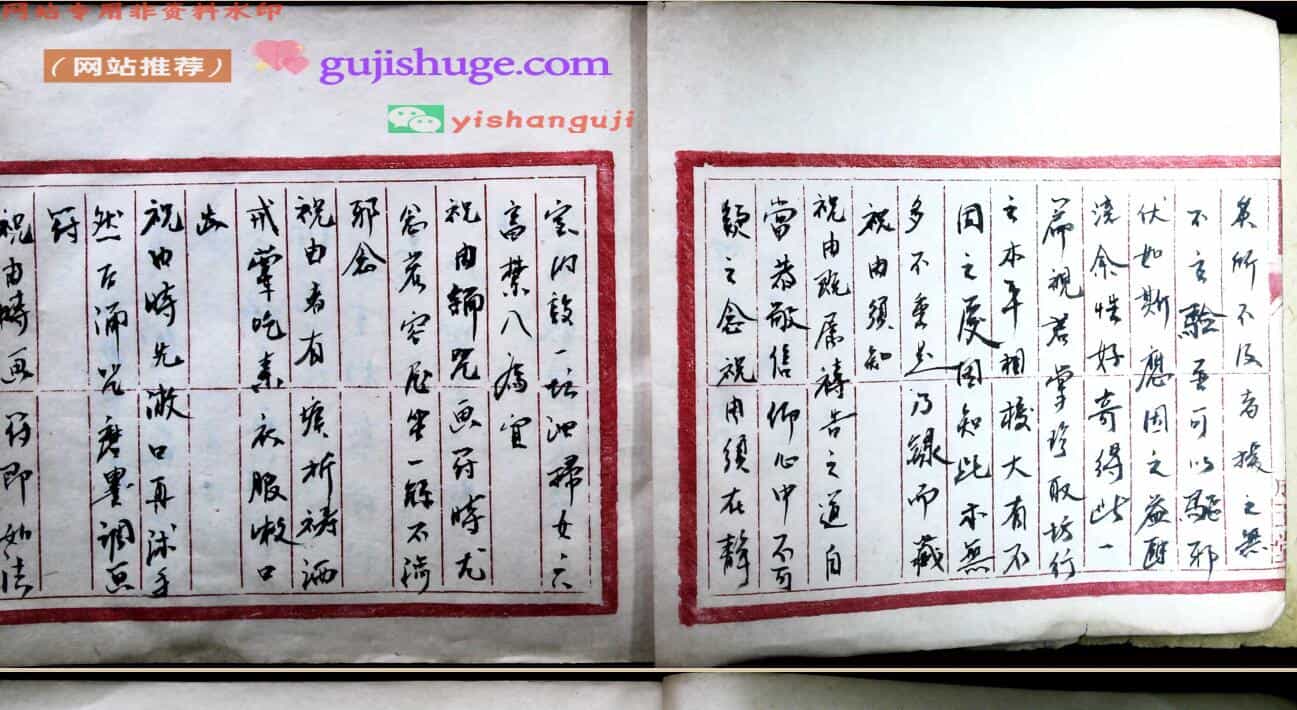 网站专用非资料水印
（网站推荐）
gujishuge.com
yishanguji
矣所不及者擬之無
不言驗並可以驅邪
伏如斯應因之益
余性好奇得此一
篇視若掌珍取坊行
之本平相校大有不
同之處因知此亦無
多不重出乃録而藏
祝由須知
祝由既屬禱告之道自
當恭敬信仰心中不可
疑之念祝由須在靜
室内設一壇洒掃女六
畜禁入為宜
祝由誦咒画符時尤
若容在坐一稍不
邪念
祝由者有疾祈祷洒
戒葷吃素衣服漱口
齿
祝由時先漱口再洗手
然后涌咒磨墨調画
符
祝由時画符即如法